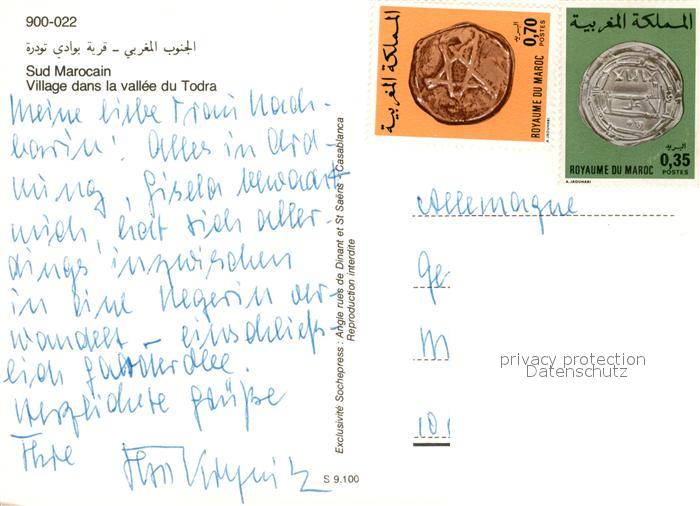 900-022
الجنوب المغربي – قرية بوادي تودرة
Sud Marocain
Village dans la vallée du Todra
Meine liebe Frau Nach-
barin! Alles in Ord-
nung, Gisela bewacht
mich, hat sich aller-
dings inzwischen
in eine Negerin ver-
wandelt – einschließ-
lich
Herzliche Grüße
Ihre
Exclusivité Sochepress : Angle rues de Dinant et St Saëns - Casablanca
Reproduction interdite
S 9.100
المملكة المغربية
0,70
البريد
POSTES
ROYAUME DU MAROC
A. JAOUHARI
المملكة المغربية
البريد
0,35
ROYAUME DU MAROC
POSTES
A. JAOUHARI
Allemagne
Ge
M
101
privacy protection
Datenschutz